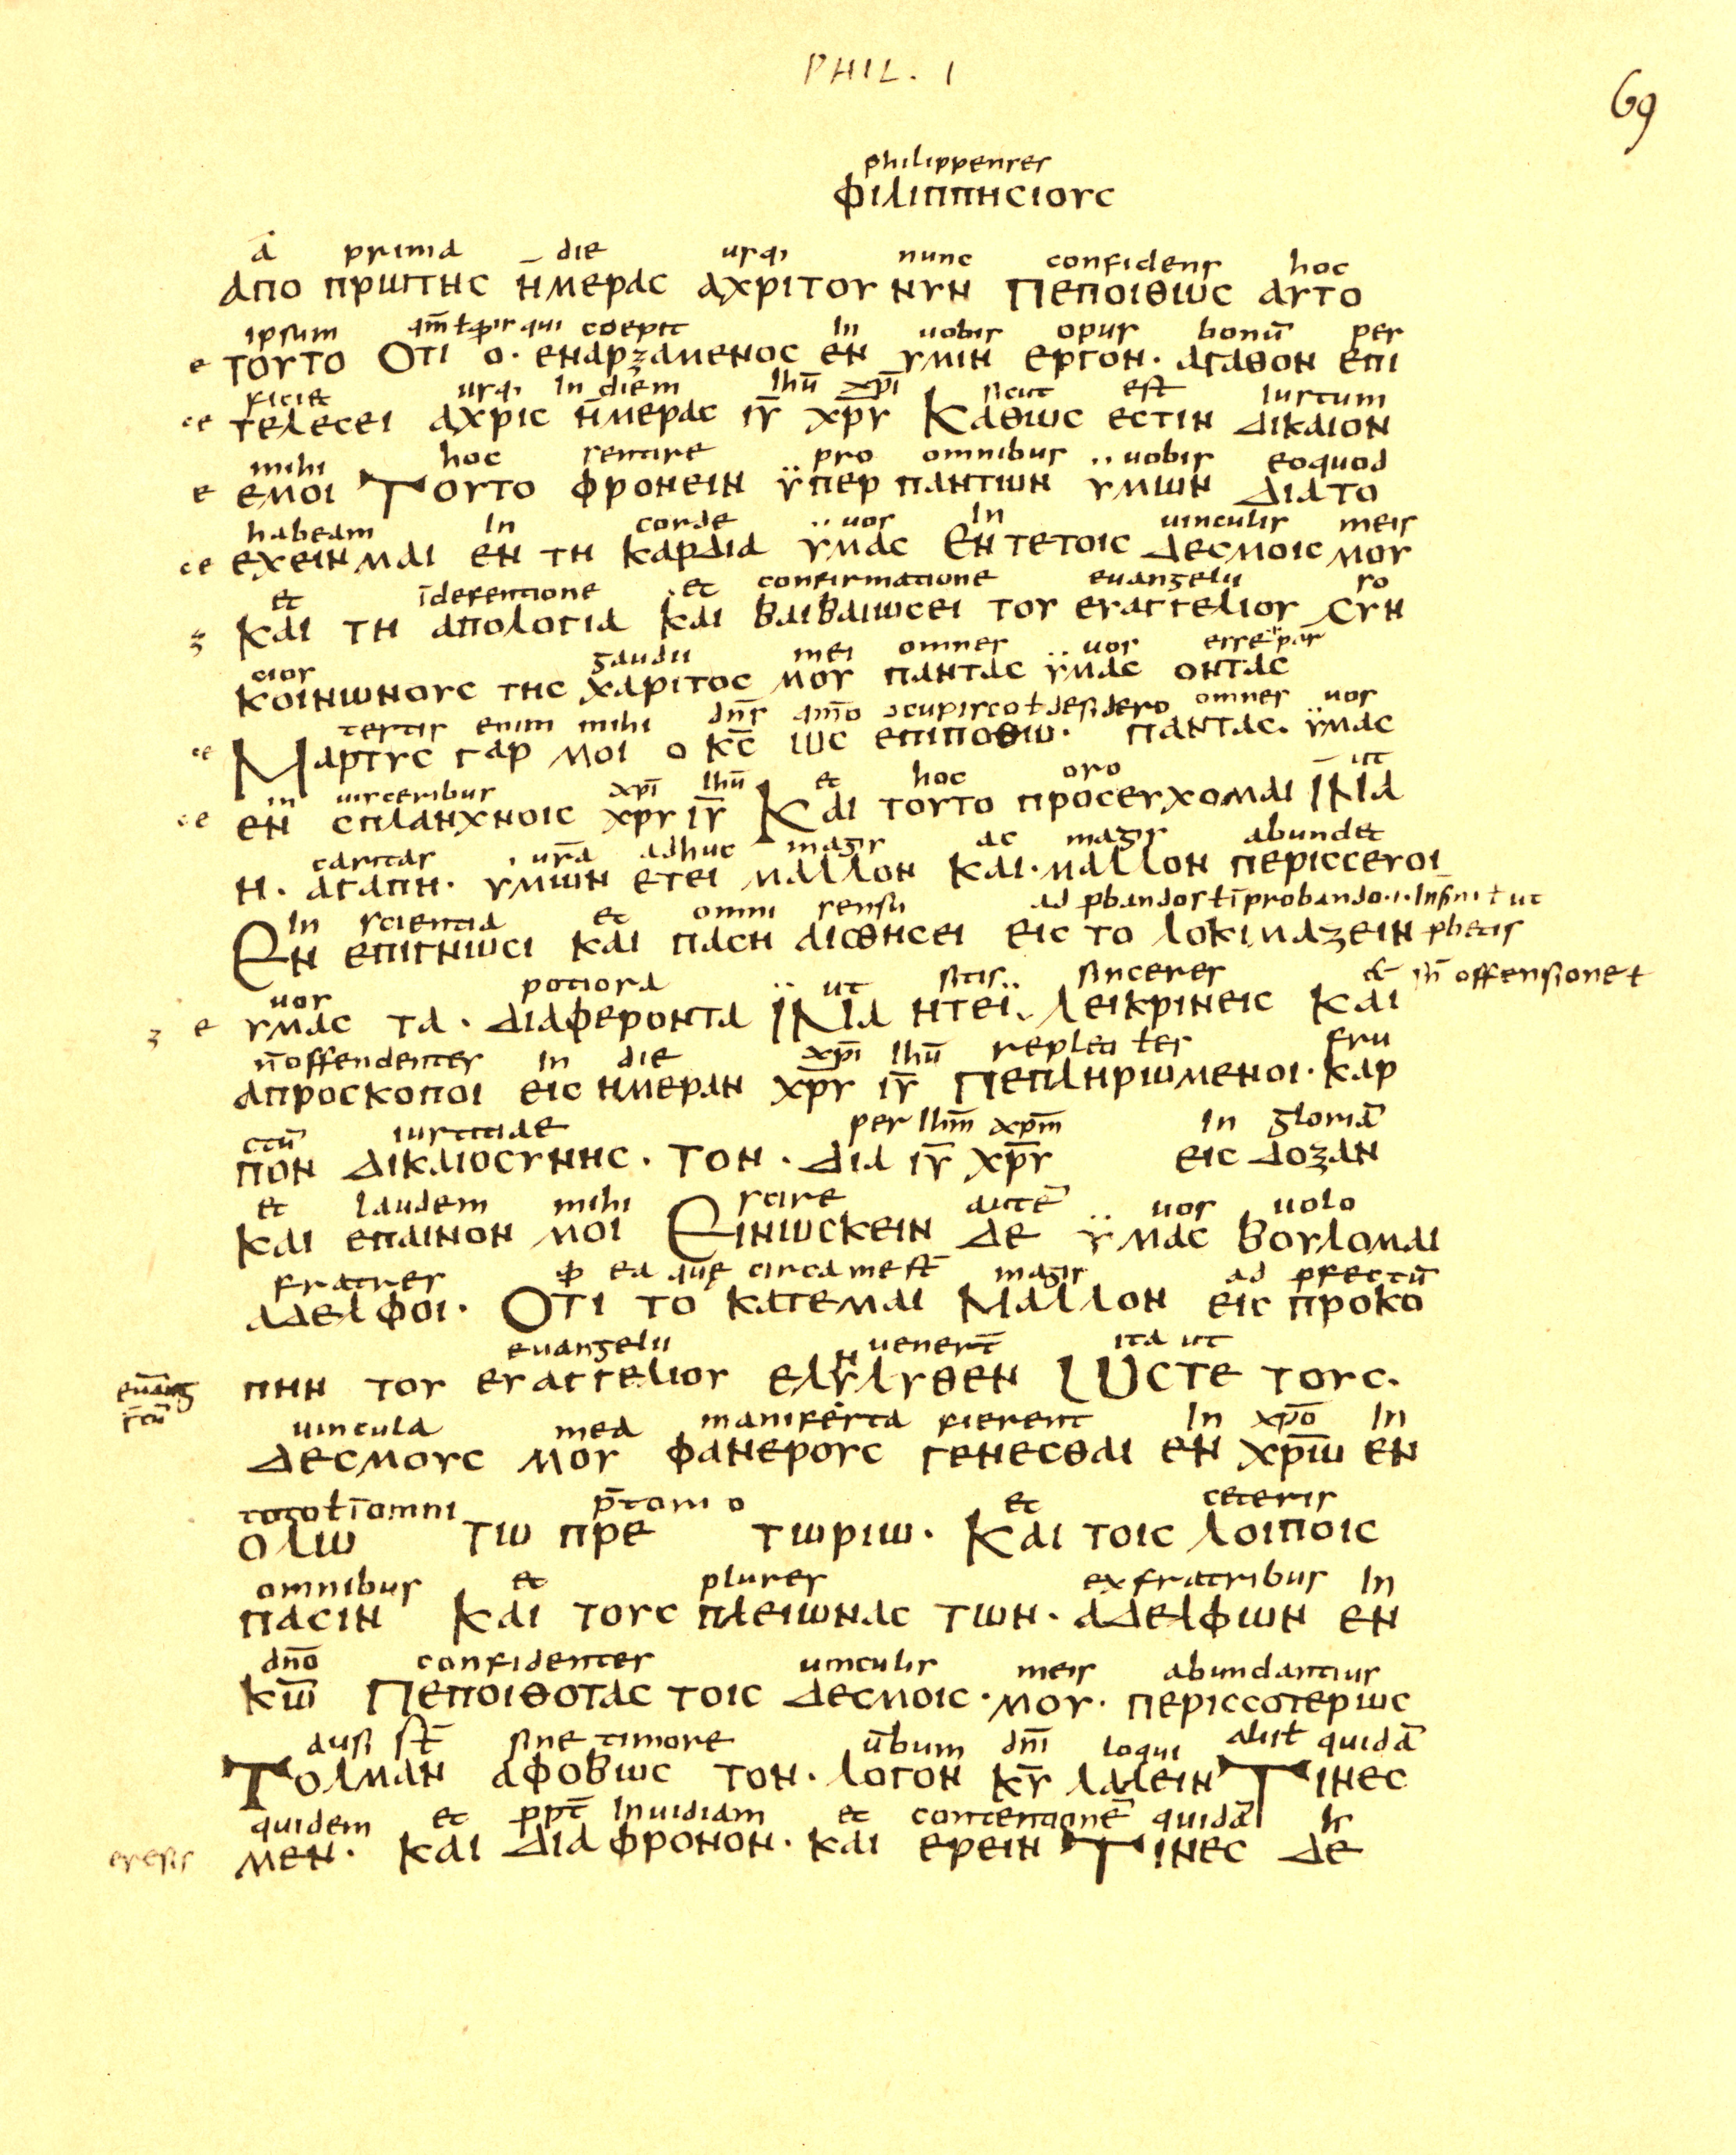 PHIL. I
69
philippenses
ΦΙΛΙΠΠΗCΙΟΥC
a prima die usqi nunc confidens hoc
ΑΠΟ ΠΡѠΤΗC ΗΜΕΡΑC ΑΧΡΙΤΟΥ ΝΥΝ ΠΕΠΟΙΘѠC ΑΥΤΟ
ipsum qui coepit in uobis opus bonū per
ΤΟΥΤΟ ΟΤΙ Ο· ΕΝΑΡΞΑΜΕΝΟC ΕΝ ΥΜΙΝ ΕΡΓΟΝ· ΑΓΑΘΟΝ ΕΠΙ
ficiet usqi in diem ihū xpī sicut est iustum
ΤΕΛΕCΕΙ ΑΧΡΙC ΗΜΕΡΑC ΙΥ̅ ΧΡΥ̅ ΚΑΘѠC ΕCΤΙΝ ΔΙΚΑΙΟΝ
mihi hoc sentire pro omnibus uobis eoquod
ΕΜΟΙ ΤΟΥΤΟ ΦΡΟΝΕΙΝ ΫΠΕΡ ΠΑΝΤѠΝ ΫΜѠΝ ΔΙΑΤΟ
habeam in corde uos in uinculis meis
ΕΧΕΙΝΜΑΙ ΕΝ ΤΗ ΚΑΡΔΙΑ ΫΜΑC ΕΝΤΕΤΟΙC ΔΕCΜΟΙC ΜΟΥ
et īdefensione et confirmatione euangelii so
ΚΑΙ ΤΗ ΑΠΟΛΟΓΙΑ ΚΑΙ ΒΑΙΒΑΙѠCΕΙ ΤΟΥ ΕΥΑΓΓΕΛΙΟΥ CΥΝ
cios gaudii mei omnes uos esse
ΚΟΙΝѠΝΟΥC ΤΗC ΧΑΡΙΤΟC ΜΟΥ ΠΑΝΤΑC ΫΜΑC ΟΝΤΑC
testis enim mihi dn̄s cupisco ł desidero omnes uos
ΜΑΡΤΥC ΓΑΡ ΜΟΙ Ο ΚC̅ ѠC ΕΠΙΠΟΘѠ· ΠΑΝΤΑC· ΫΜΑC
in uisceribus xpī ihū et hoc oro ut
ΕΝ CΠΛΑΝΧΝΟΙC ΧΡΥ ΙΥ̅ ΚΑΙ ΤΟΥΤΟ ΠΡΟCΕΥΧΟΜΑΙ ΙΝΑ
caritas urā adhuc magis ac magis abundet
Η· ΑΓΑΠΗ· ΥΜѠΝ ΕΤΕΙ ΜΑΛΛΟΝ ΚΑΙ·ΜΑΛΛΟΝ ΠΕΡΙCCΕΥΟΙ
in scientia et omni sensu ad pbandos ł īprobando
ΕΝ ΕΠΙΓΝѠCΙ ΚΑΙ ΠΑCΗ ΑΙCΘΗCΕΙ ΕΙC ΤΟ ΛΟΚΙΜΑΖΕΙΝ pbetis
uos potiora ut sitis sinceres et in̄ offensione ł
ΥΜΑC ΤΑ· ΔΙΑΦΕΡΟΝΤΑ ΪΝΑ ΗΤΕΙ ΛΕΙΚΡΙΝΕΙC ΚΑΙ
n̄offendentes in die xpī ihū repleti łes fru
ΑΠΡΟCΚΟΠΟΙ ΕΙC ΗΜΕΡΑΝ ΧΡΥ̅ ΙΥ̅ ΠΕΠΛΗΡѠΜΕΝΟΙ· ΚΑΡ
ctū iustitiae per ihm̄ xpm̄ in gloriā
ΠΟΝ ΔΙΚΑΙΟCΥΝΗC· ΤΟΝ· ΔΙΑ ΙΥ̅ ΧΡΥ̅ ΕΙC ΔΟΞΑΝ
et laudem mihi scire autē uos uolo
ΚΑΙ ΕΠΑΙΝΟΝ ΜΟΙ ΕΙΝѠCΚΕΙΝ ΔΕ ΫΜΑC ΒΟΥΛΟΜΑΙ
fratres ea que circa me st̄ magis ad pfectū
ΑΔΕΛΦΟΙ· ΟΤΙ ΤΟ ΚΑΤΕΜΑΙ ΜΑΛΛΟΝ ΕΙC ΠΡΟΚΟ
euangelii uenert̄ ita ut
ΠΗΝ ΤΟΥ ΕΥΑΓΓΕΛΙΟΥ ΕΛΥΛΥΘΕΝ ѠCΤΕ ΤΟΥC·
uincula mea manifesta fierent in xpō in
ΔΕCΜΟΥC ΜΟΥ ΦΑΝΕΡΟΥC ΓΕΝΕCΘΑΙ ΕΝ ΧΡѠ̅ ΕΝ
toto ł ī omni p̄tori o et ceteris
ΟΛѠ ΤѠ ΠΡΕ ΤѠΡΙѠ· ΚΑΙ ΤΟΙC ΛΟΙΠΟΙC
omnibus et plures ex fratribus in
ΠΑCΙΝ ΚΑΙ ΤΟΥC ΠΛΕΙѠΝΑC ΤѠΝ· ΑΔΕΛΦѠΝ ΕΝ
dn̄o confidentes uinculis meis abundantius
ΚѠ̅ ΠΕΠΟΙΘΟΤΑC ΤΟΙC ΔΕCΜΟΙC·ΜΟΥ· ΠΕΡΙCCΟΤΕΡѠC
ausi st̄ sine timore ūbum dn̄i loqui quidā
ΤΟΛΜΑΝ ΑΦΟΒѠC ΤΟΝ· ΛΟΓΟΝ ΚΥ̅ ΛΑΛΕΙΝ ΤΙΝΕC
quidem et ppt̄ inuidiam et contentionē quidā
eresis ΜΕΝ· ΚΑΙ ΔΙΑ ΦΡΟΝΟΝ· ΚΑΙ ΕΡΕΙΝ ΤΙΝΕC ΔΕ